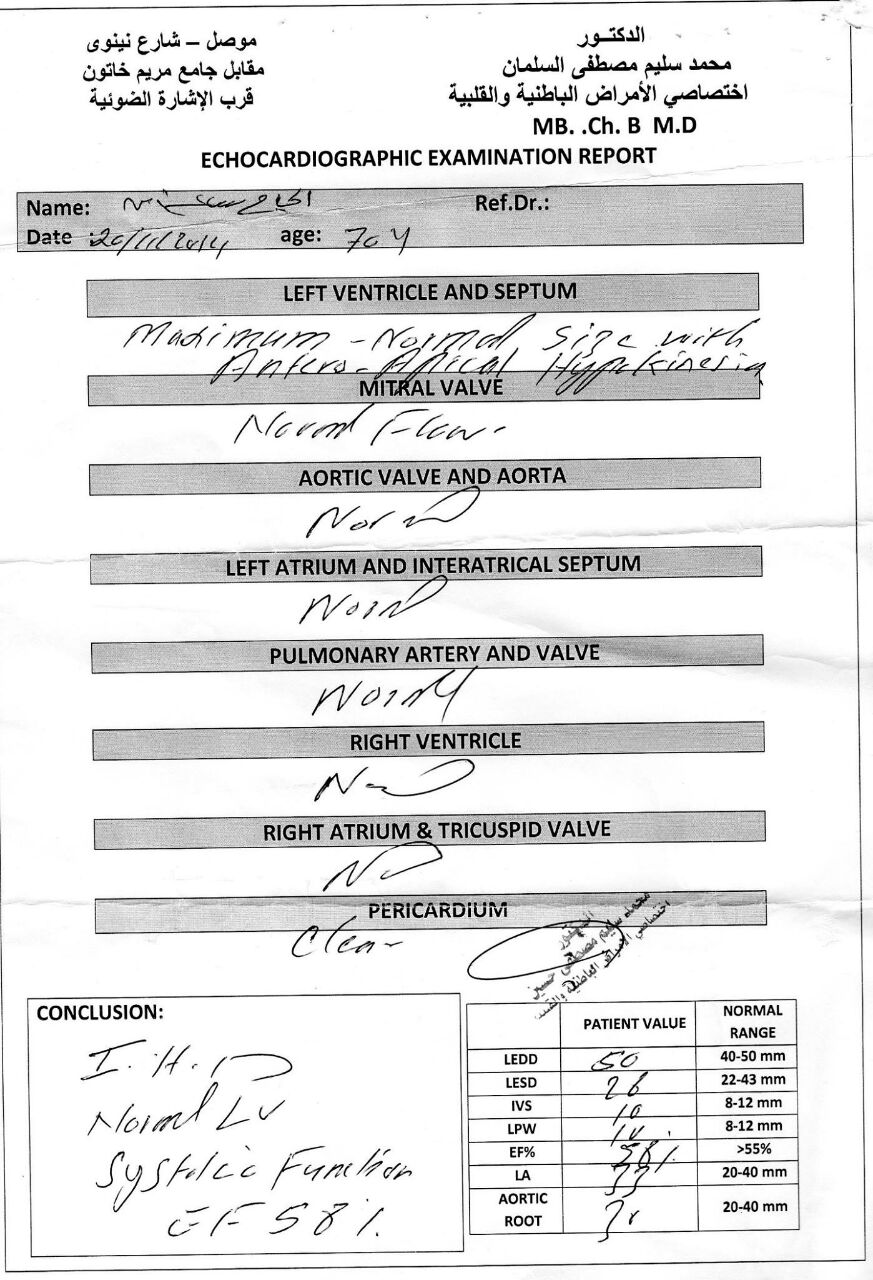 الدكتــور
محمد سليم مصطفى السلمان
اختصاصي الأمراض الباطنية والقلبية
MB. .Ch. B M.D
موصل – شارع نينوى
مقابل جامع مريم خاتون
قرب الإشارة الضوئية
ECHOCARDIOGRAPHIC EXAMINATION REPORT
Name: Ref.Dr.:
Date : age: 70 y
LEFT VENTRICLE AND SEPTUM
Maximum - Normal Size with
Antero-Apical Hypokinesia
MITRAL VALVE
Normal Flow
AORTIC VALVE AND AORTA
Normal
LEFT ATRIUM AND INTERATRICAL SEPTUM
Normal
PULMONARY ARTERY AND VALVE
Normal
RIGHT VENTRICLE
RIGHT ATRIUM & TRICUSPID VALVE
PERICARDIUM
Clear
الدكتور
محمد سليم مصطفى حسين
اختصاصي الأمراض الباطنية والقلبية
CONCLUSION:
I.H.D
Normal LV
Systolic Function
EF 58%
PATIENT VALUE NORMAL RANGE
LEDD 50 40-50 mm
LESD 26 22-43 mm
IVS 10 8-12 mm
LPW 10 8-12 mm
EF% 58% >55%
LA 33 20-40 mm
AORTIC ROOT 20-40 mm